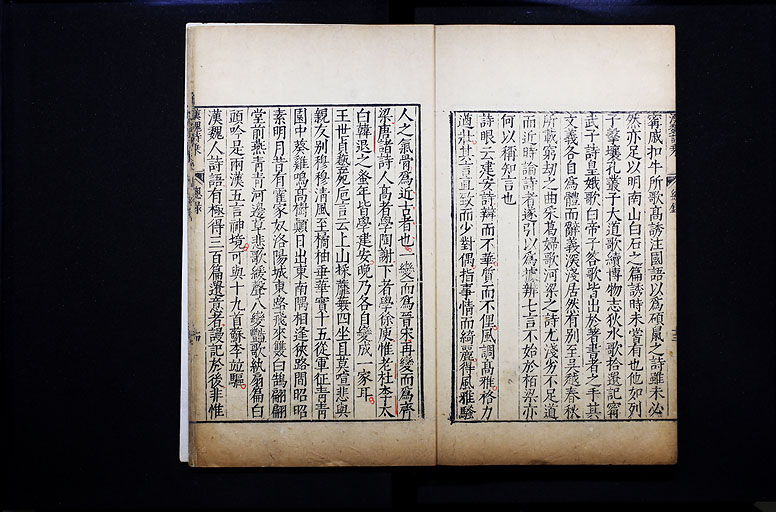 甯戚扣牛所歌髙誘注國語以爲碩鼠之詩雖未必
然亦足以明南山白石之篇誘時未嘗有也他如列
子擊壤孔叢子大道歌續博物志狄水歌拾遺記甯
武子詩皇娥歌白帝子答歌皆出於著書者之手其
文義各自爲體而辭義深淺居然有别至吴越春秋
所載窮劫之曲采葛婦歌河梁之詩尤淺劣不足道
而近時論詩者遂引以爲據辨七言不始於栢梁亦
何以稱知言也
詩眼云建安詩辯而不華質而不俚風調髙雅格力
遒壯其言直致而少對偶指事情而綺麗得風雅騷
人之氣骨爲近古者也一變而爲晉宋再變而爲齊
梁唐諸詩人髙者學陶謝下者學徐庾惟老杜李太
白韓退之蚤年皆學建安晚乃各自變成一家耳
王世貞藝苑巵言云上山採蘼蕪四坐且莫喧悲與
親友别穆穆清風至橘柚垂華實十五從軍征青青
園中葵雞鳴髙樹顛日出東南隅相逢狹路間昭昭
素明月昔有霍家奴洛陽城東路飛來雙白鵠翩翩
堂前燕青青河邊草悲歌緩聲八變豔歌紈扇篇白
頭吟是兩漢五言神境可與十九首蘇李竝驅
漢魏人詩語有極得三百篇遺意者謾記於後非惟
漢魏詩乗
緫錄
十四